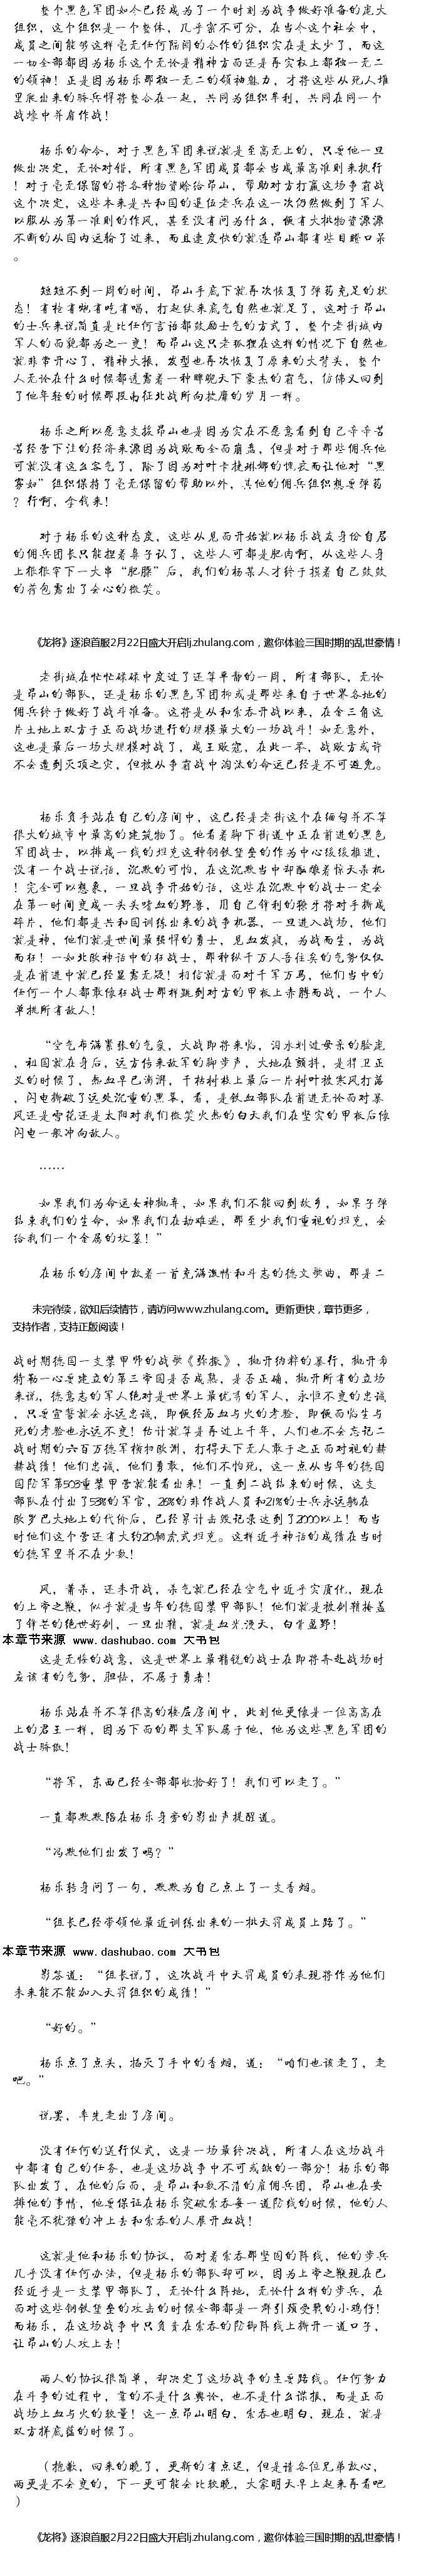 整个黑色军团如今已经成为了一个时刻为战争做好准备的庞大
组织，这个组织是一个整体，几乎密不可分，在当今这个社会中，
成员之间能够这样毫无任何隔阂的合作的组织实在是太少了，而这
一切全部都因为杨乐这个无论是精神方面还是再实权上都独一无二
的领袖！正是因为杨乐那独一无二的领袖魅力，才将这些从死人堆
里爬出来的骄兵悍将整合在一起，共同为组织牟利，共同在同一个
战壕中并肩作战！
杨乐的命令，对于黑色军团来说就是至高无上的，只要他一旦
做出决定，无论对错，所有黑色军团成员都会当成最高准则来执行
！对于毫无保留的将各种物资赊给昂山，帮助对方打赢这场争霸战
这个决定，这些本来是共和国的退伍老兵在这一次仍然做到了军人
以服从为第一准则的作风，甚至没有问为什么，便有大批物资源源
不断的从国内运输了过来，而且速度快的就连昂山都有些目瞪口呆
。
短短不到一周的时间，昂山手底下就再次恢复了弹药充足的状
态！有枪有炮有吃有喝，打起仗来底气自然也就足了，这对于昂山
的士兵来说简直是比任何言语都鼓励士气的方式了，整个老街城内
军人的面貌都为之一变！而昂山这只老狐狸在这样的情况下自然也
就非常开心了，精神大振，发型也再次恢复了原来的大背头，整个
人无论在什么时候都透露着一种睥睨天下豪杰的霸气，仿佛又回到
了他年轻的时候那段南征北战所向披靡的岁月一样。
杨乐之所以愿意支援昂山也是因为实在不愿意看到自己辛辛苦
苦经营下注的经济来源因为战败而全面崩盘，但是对于那些佣兵他
可就没有这么客气了，除了因为对叶卡捷琳娜的愧疚而让他对“黑
寡妇”组织保持了毫无保留的帮助以外，其他的佣兵组织想要弹药
？行啊，拿钱来！
对于杨乐的这种态度，这些从见面开始就以杨乐战友身份自居
的佣兵团长只能捏着鼻子认了，这些人可都是肥肉啊，从这些人身
上狠狠宰下一大串“肥膘”后，我们的杨某人才终于摸着自己鼓鼓
的荷包露出了会心的微笑。
《龙将》逐浪首服2月22日盛大开启lj.zhulang.com，邀你体验三国时期的乱世豪情！
老街城在忙忙碌碌中度过了还算平静的一周，所有部队，无论
是昂山的部队，还是杨乐的黑色军团抑或是那些来自于世界各地的
佣兵终于做好了战斗准备。这将是从和索吞开战以来，在金三角这
片土地上双方于正面战场进行的规模最大的一场战斗！如无意外，
这也是最后一场大规模对战了，成王败寇，在此一举，战败方或许
不会遭到灭顶之灾，但被从争霸战中淘汰的命运已经是不可避免。
杨乐负手站在自己的房间中，这已经是老街这个在缅甸并不算
很大的城市中最高的建筑物了。他看着脚下街道中正在前进的黑色
军团战士，以排成一线的坦克这种钢铁堡垒的作为中心缓缓推进，
没有一个战士说话，沉默的可怕，在这沉默当中却酝酿着惊天杀机
！完全可以想象，一旦战争开始的话，这些在沉默中的战士一定会
在第一时间变成一头头嗜血的野兽，用自己锋利的獠牙将对手撕成
碎片，他们都是共和国训练出来的战争机器，一旦进入战场，他们
就是神，他们就是世间最强悍的勇士，见血发疯，为战而生，为战
而狂！一如北欧神话中的狂战士，那种纵千万人吾往矣的气势仅仅
是在前进中就已经显露无疑！相信就是面对千军万马，他们当中的
任何一个人都敢像狂战士那样跳到对方的甲板上赤膊而战，一个人
单挑所有敌人！
“空气布满紧张的气氛，大战即将来临，泪水划过母亲的脸庞
，祖国就在身后，远方传来敌军的脚步声，大地在颤抖，是捍卫正
义的时候了，热血早已澎湃，干枯树枝上最后一片树叶被寒风打落
，闪电撕破了远处沉重的黑幕，看，是铁血部队在前进无论面对暴
风还是雪花还是太阳对我们微笑火热的白天我们在坚实的甲板后像
闪电一般冲向敌人。
……
如果我们为命运女神抛弃，如果我们不能回到故乡，如果子弹
结束我们的生命，如果我们在劫难逃，那至少我们重视的坦克，会
给我们一个金属的坟墓！”
在杨乐的房间中放着一首充满激情和斗志的德文歌曲，那是二
未完待续，欲知后续情节，请访问www.zhulang.com。更新更快，章节更多，
支持作者，支持正版阅读！
战时期德国一支装甲师的战歌《弥撒》，抛开纳粹的暴行，抛开希
特勒一心要建立的第三帝国是否成熟，是否正确，抛开所有的立场
来说，德意志的军人绝对是世界上最优秀的军人，永恒不变的忠诚
，只要宣誓就会永远忠诚，即便经历血与火的考验，即便面临生与
死的考验也永远不变！估计就算是再过上千年，人们也不会忘记二
战时期的六百万德军横扫欧洲，打得天下无人敢于之正面对视的赫
赫战绩！他们忠诚，他们勇敢，他们不怕死，这一点从当年的德国
国防军第503重装甲营就能看出来！一直到二战结束的时候，这支
部队在付出了53%的军官，26%的非作战人员和21%的士兵永远躺在
欧罗巴大地上的代价后，已经累计击毁记录达到了2000以上！而当
时他们这个营还有大约20辆虎式坦克。这样近乎神话的成绩在当时
的德军里并不在少数！
风，萧杀，还未开战，杀气就已经在空气中近乎实质化，现在
的上帝之鞭，似乎就是当年的德国装甲部队！他们就是被剑鞘掩盖
了锋芒的绝世好剑，一旦出鞘，就是血光漫天，白骨盈野！
本章节来源 www.dashubao.com 大书包
这是无悔的战意，这是世界上最精锐的战士在即将奔赴战场时
应该有的气势，胆怯，不属于勇者！
杨乐站在并不算很高的楼层房间中，此刻他更像是一位高高在
上的君王一样，因为下面的那支军队属于他，他为这些黑色军团的
战士骄傲！
“将军，东西已经全部都收拾好了！我们可以走了。”
一直都默默陪在杨乐身旁的影出声提醒道。
“冯默他们出发了吗？”
杨乐转身问了一句，默默为自己点上了一支香烟。
“组长已经带领他最近训练出来的一批天罚成员上路了。”
本章节来源 www.dashubao.com 大书包
影答道：“组长说了，这次战斗中天罚成员的表现将作为他们
未来能不能加入天罚组织的成绩！”
“好的。”
杨乐点了点头，掐灭了手中的香烟，道：“咱们也该走了，走
吧。”
说罢，率先走出了房间。
没有任何的送行仪式，这是一场最终决战，所有人在这场战斗
中都有自己的任务，也是这场战争中不可或缺的一部分！杨乐的部
队出发了，在他的后面，是昂山和数不清的雇佣兵团，昂山也在安
排他的事情，他要保证在杨乐突破索吞每一道防线的时候，他的人
能毫不犹豫的冲上去和索吞的人展开血战！
这就是他和杨乐的协议，面对着索吞那坚固的阵线，他的步兵
几乎没有任何办法，但是杨乐的部队却可以，因为上帝之鞭现在已
经近乎是一支装甲部队了，无论什么阵地，无论什么样的步兵，在
面对这些钢铁堡垒的攻击的时候全部都是一群引颈受戮的小鸡仔！
而杨乐，在这场战争中只负责在索吞的防御阵线上撕开一道口子，
让昂山的人攻上去！
两人的协议很简单，却决定了这场战争的主要路线。任何努力
在斗争的过程中，靠的不是什么舆论，也不是什么谍报，而是正面
战场上血与火的较量！这一点昂山明白，索吞也明白，现在，就是
双方拼底蕴的时候了。
（抱歉，回来的晚了，更新的有点迟，但是请各位兄弟放心，
两更是不会变的，下一更可能会比较晚，大家明天早上起来再看吧
）
《龙将》逐浪首服2月22日盛大开启lj.zhulang.com，邀你体验三国时期的乱世豪情！